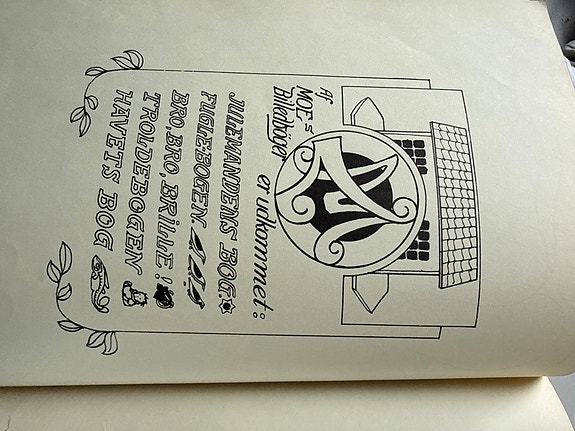 Af
MOE=s
Billedbøger
er udkommet:
JULEMANDENS BOG.
FUGLEBOGEN
BRO, BRO, BRILLE!
TROLDEBOGEN
HAVETS BOG